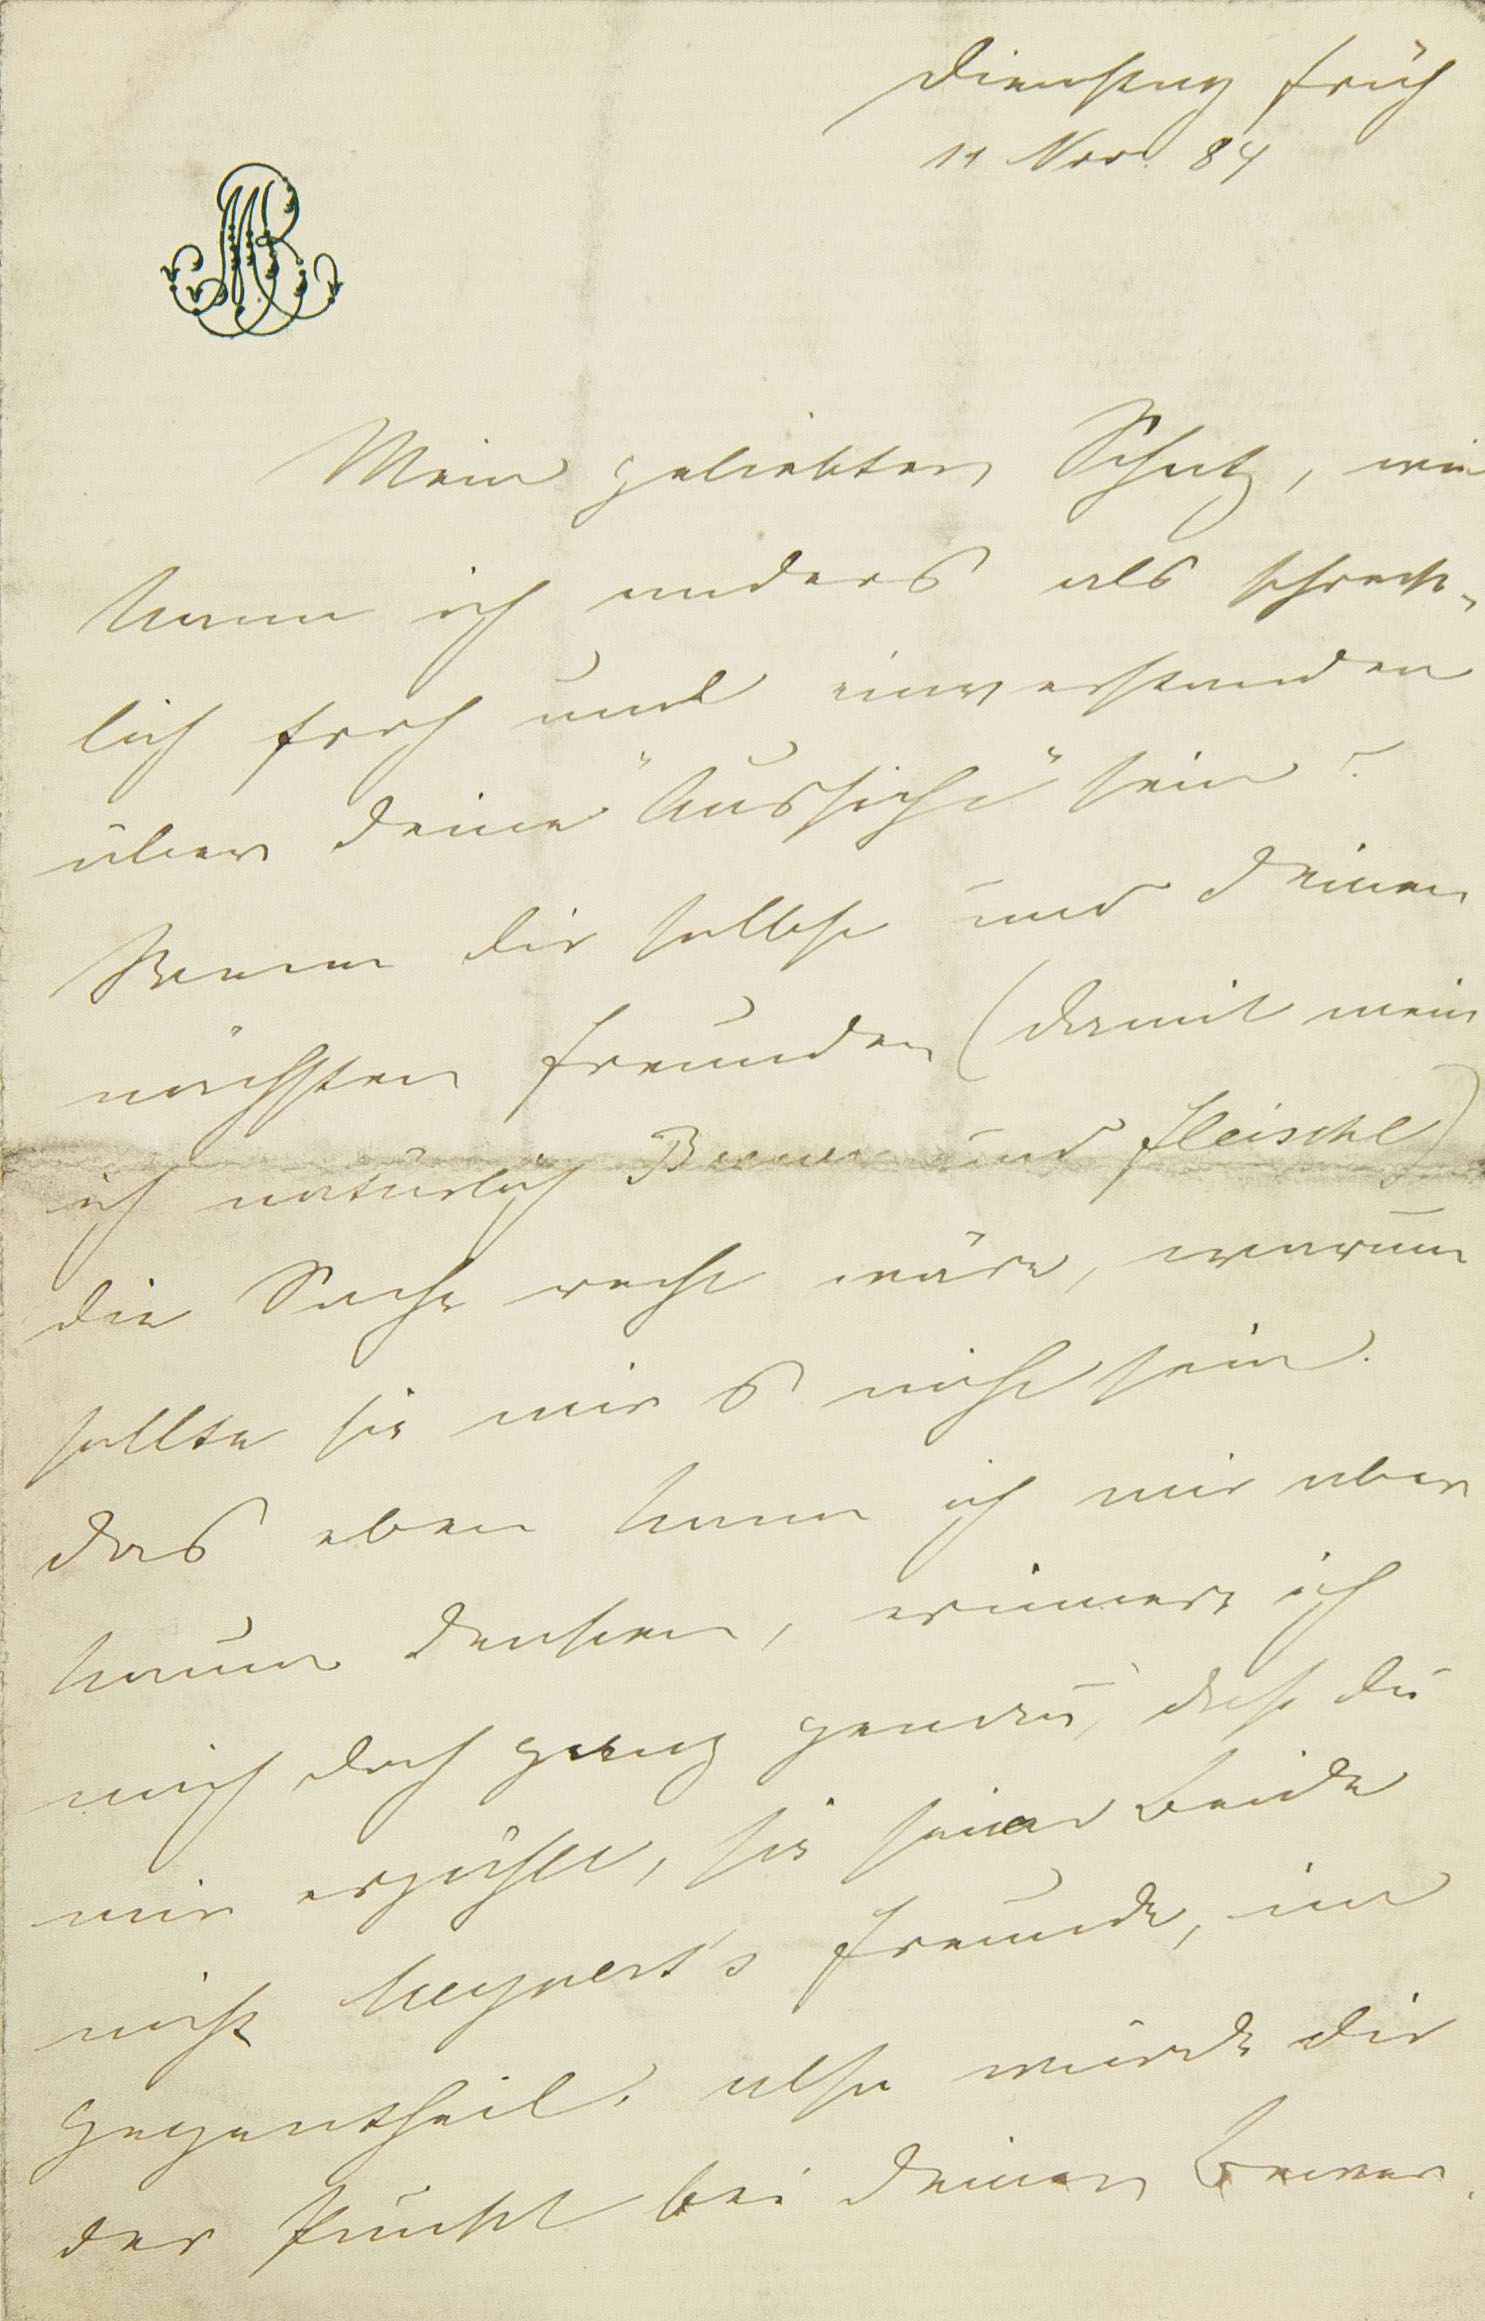 Dienstag früh
11 Nov. 84
MB
Mein geliebter Schatz, wie
kann ich anders als schreck-
lich froh und einverstanden
über Deine "Aussicht" sein?
Wenn Dir selbst und Deinen
nächsten Freunden (damit mein
ich natürlich Breuer und Fleischl)
die Sache recht wäre, warum
sollte sie mir's nicht sein.
Das eben kann ich mir aber
kaum denken, erinnere ich
mich doch ganz genau, daß Du
mir erzählt, sie seien beide
nicht Meynert's Freunde, im
Gegentheil. Also würde Dir
der Punkt bei Deiner Bewer-